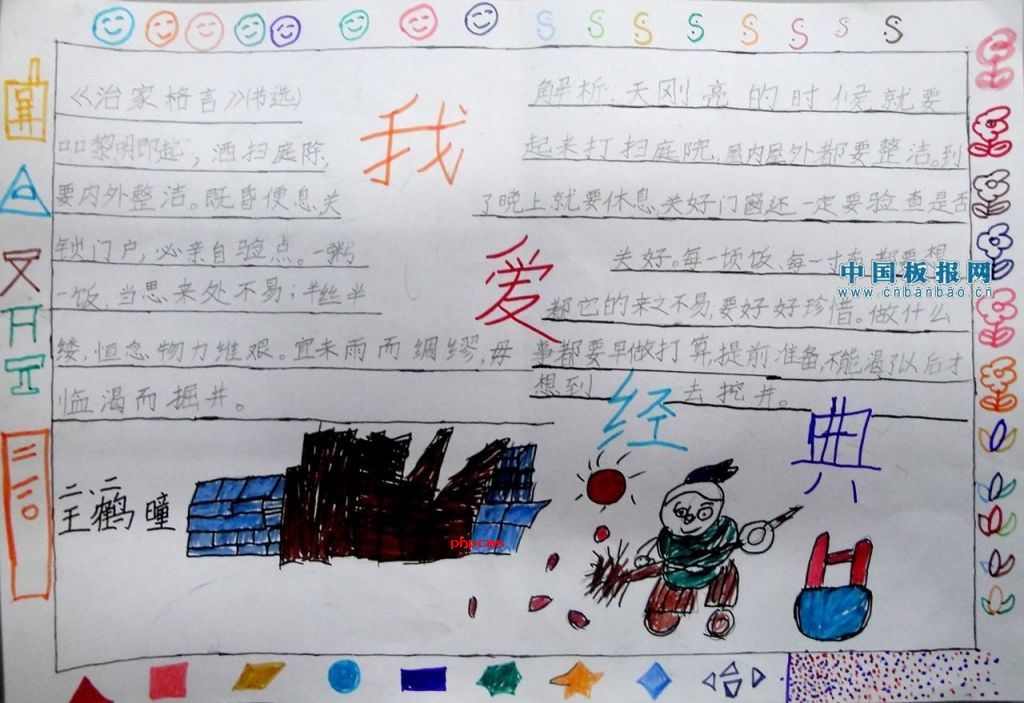 我
爱
经
典
《治家格言》(节选)
黎明即起，洒扫庭除，
要内外整洁。既昏便息，关
锁门户，必亲自验点。一粥
一饭，当思来处不易；半丝半
缕，恒念物力维艰。宜未雨而绸缪，毋
临渴而掘井。
解析：天刚亮的时候就要
起来打扫庭院，屋内屋外都要整洁。到
了晚上就要休息，关好门窗还一定要验查是否
关好。每一顿饭、每一寸 都要想
都它的来之不易，要好好珍惜。做什么
事都要早做打算，提前准备，不能渴了以后才
想到 去挖井。
二、二
王鹤曈
中国板报网
www.cnbanbao.cn
phpcms